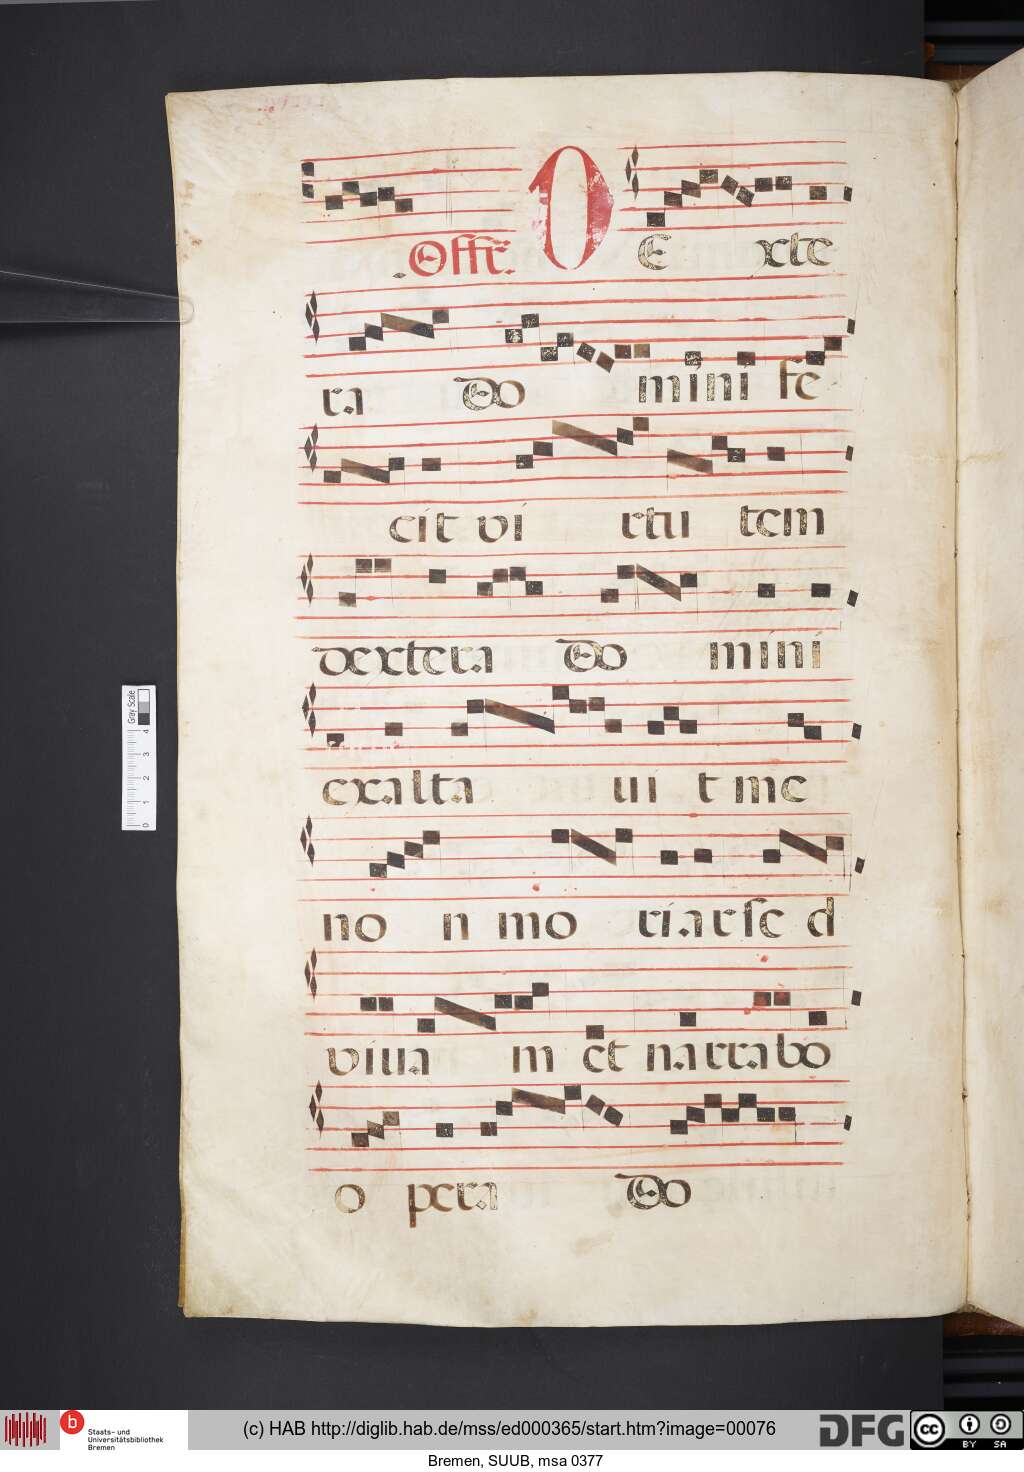 Offr. D E xte
ra Do mini fe
cit vi rtu tem
dextera Do mini
exalta ui t me
no n mo riar se d
viua m et narrabo
o pera Do
Gray Scale
0 1 2 3 4
b Staats- und Universitätsbibliothek Bremen
(c) HAB http://diglib.hab.de/mss/ed000365/start.htm?image=00076
DFG
CC BY SA
Bremen, SUUB, msa 0377